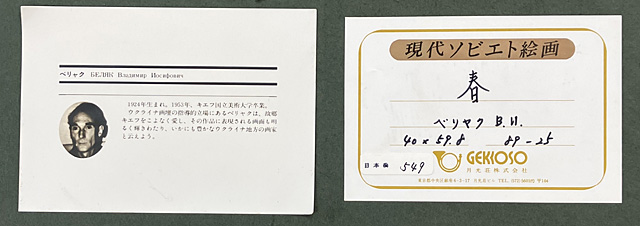 ベリャク БЕЛЯК Владимир Иосифович
1924年生まれ。1953年、キエフ国立美術大学卒業。
ウクライナ画壇の指導的立場にあるベリャクは、故郷
キエフをこよなく愛し、その作品に表現される画面も明
るく輝きわたり、いかにも豊かなウクライナ地方の画家
と云えよう。
現代ソビエト絵画
春
ベリヤク В.И.
40×59.8 89-25
GEKKOSO
月光荘株式会社
日本画
549